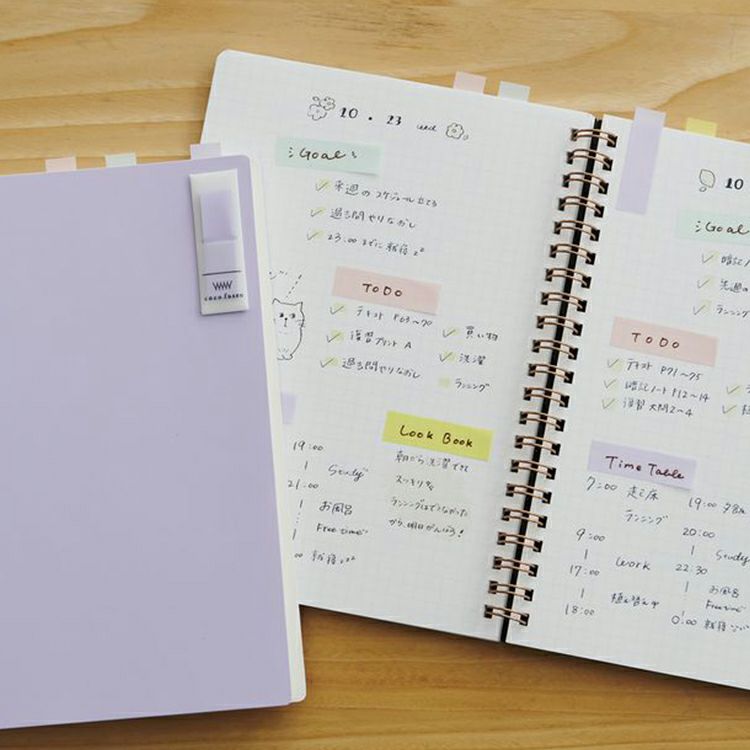 coco fusen
10.23 wed
Goal
来週のスケジュール立てる
過去問やりなおし
23:00までに就寝zz
TODO
テキスト P63~70
復習プリント A
過去問やりなおし
買い物
洗濯
ランニング
19:00
Study
21:00
お風呂
Free time
00 就寝zzz
Look Book
朝から洗濯できて
スッキリ
ランニングはできなかった
から、明日がんばろう!
10
Goal
暗記ノ
先週の
ランニング
TODO
テキスト P71~75
暗記ノート P12~14
復習 大問2~4
Time Table
7:00 起床
ランニング
9:00
Work
17:00
18:00
19:00 夕食
20:00
Study
22:30
お風呂
Free time
0:00 就寝